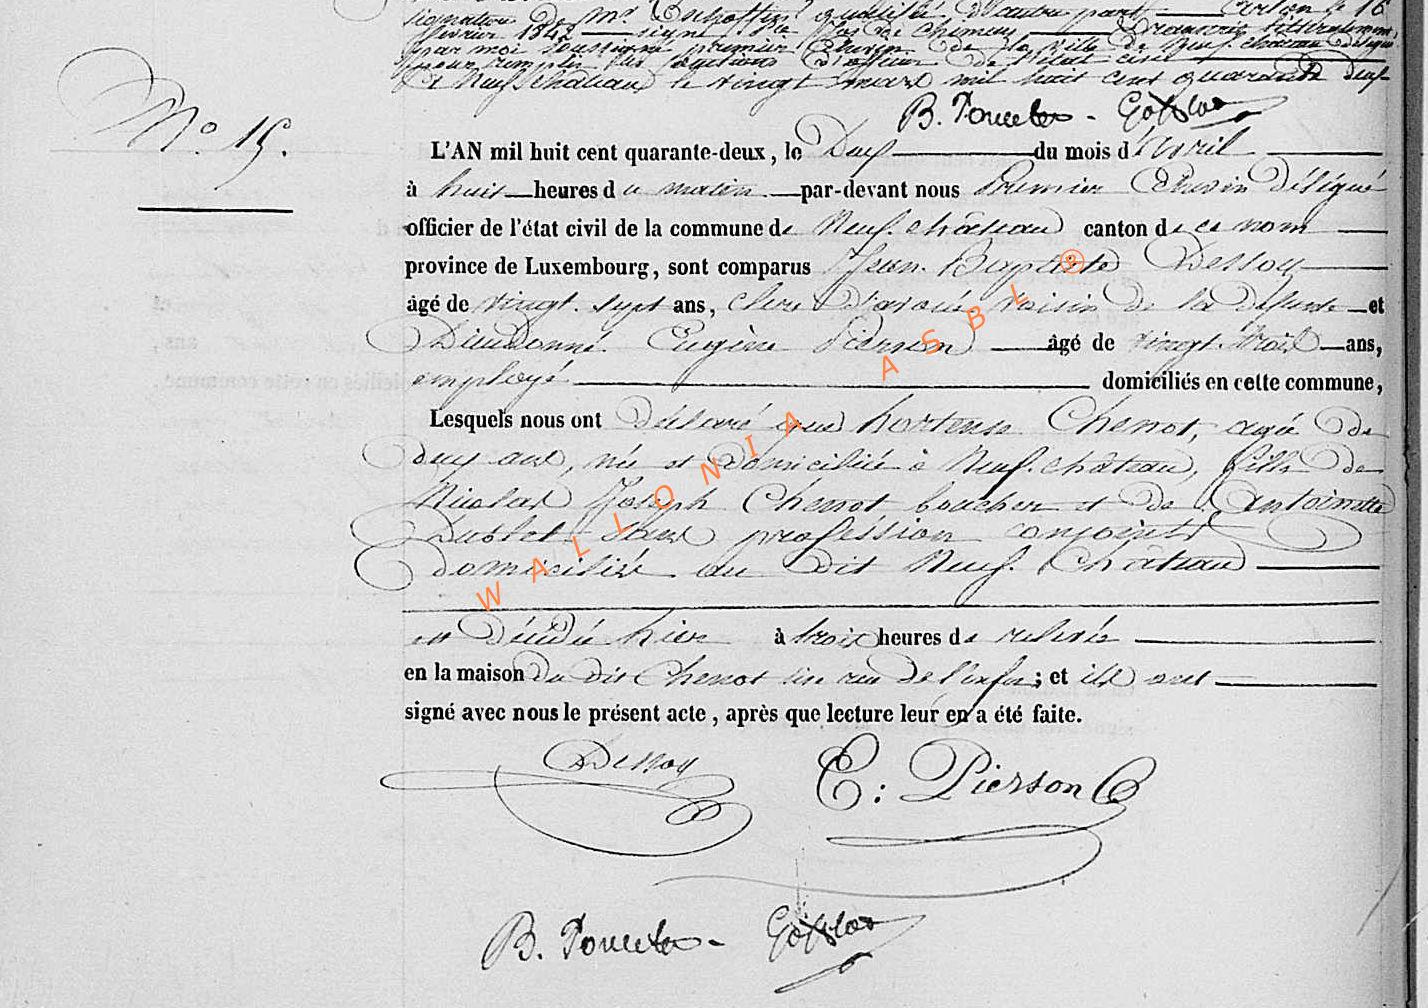 signature de Mr
février 1842 signé
par moi soussigné premier Echevin de la ville de Neufchâteau délégué
pour remplir les fonctions d'officier de l'état civil
à Neufchâteau le vingt mars mil huit cent quarante deux
N° 15.
L'AN mil huit cent quarante-deux, le Deux du mois d'avril
à huit heures du matin par-devant nous Premier Echevin Délégué
officier de l'état civil de la commune de Neuf-château canton de ce nom
province de Luxembourg, sont comparus Jean Baptiste Dessoy
âgé de vingt-sept ans, clerc d'avoué voisin de la défunte et
Dieudonné Eugène Pierson âgé de vingt-trois ans,
employé domiciliés en cette commune,
Lesquels nous ont déclaré que hortense Chenot, agée de
deux ans, née et domiciliée à Neuf-château, fille de
Nicolas Joseph Chenot boucher et de Antoinette
sans profession conjoints
domiciliés au dit Neuf-Château
est décédée hier à trois heures de relevée
en la maison du dit Chenot rue de ; et ils ont
signé avec nous le présent acte, après que lecture leur en a été faite.
Dessoy
E: Pierson
WALLONIA ASBL ®